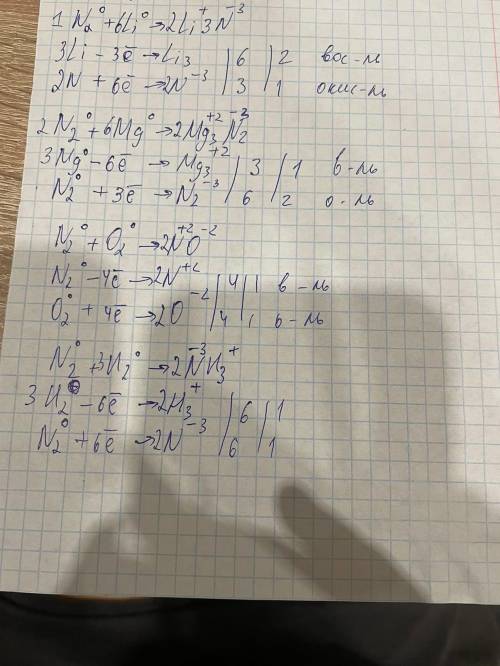 1 N₂⁰ + 6Li⁰ → 2Li⁺₃N⁻³
3Li - 3ē → Li₃ | 6 | 2 вос-ль
2N + 6ē → 2N⁻³ | 3 | 1 окис-ль
2 N₂⁰ + 6Mg⁰ → 2Mg₃⁺²N₂⁻³
3Mg⁰ - 6ē → Mg₃⁺² | 3 | 1 в-ль
N₂⁰ + 3ē → N₂⁻³ | 6 | 2 о-ль
N₂⁰ + O₂⁰ → 2N⁺²O⁻²
N₂⁰ - 4ē → 2N⁺² | 4 | 1 в-ль
O₂⁰ + 4ē → 2O⁻² | 4 | 1 в-ль
N₂⁰ + 3H₂⁰ → 2N⁻³H₃⁺
3H₂⁰ - 6ē → 2H₃⁺ | 6 | 1
N₂⁰ + 6ē → 2N⁻³ | 6 | 1